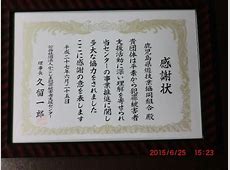 感謝状
鹿児島県備技業協同組合 殿
貴団体は平素から犯罪被害者
支援活動に深い理解を寄せられ
当センターの事業推進に関し
多大な協力をされました
ここに感謝の意を表します
平成二十七年六月二十五日
理事長 久留一郎
2015/6/25 15:23